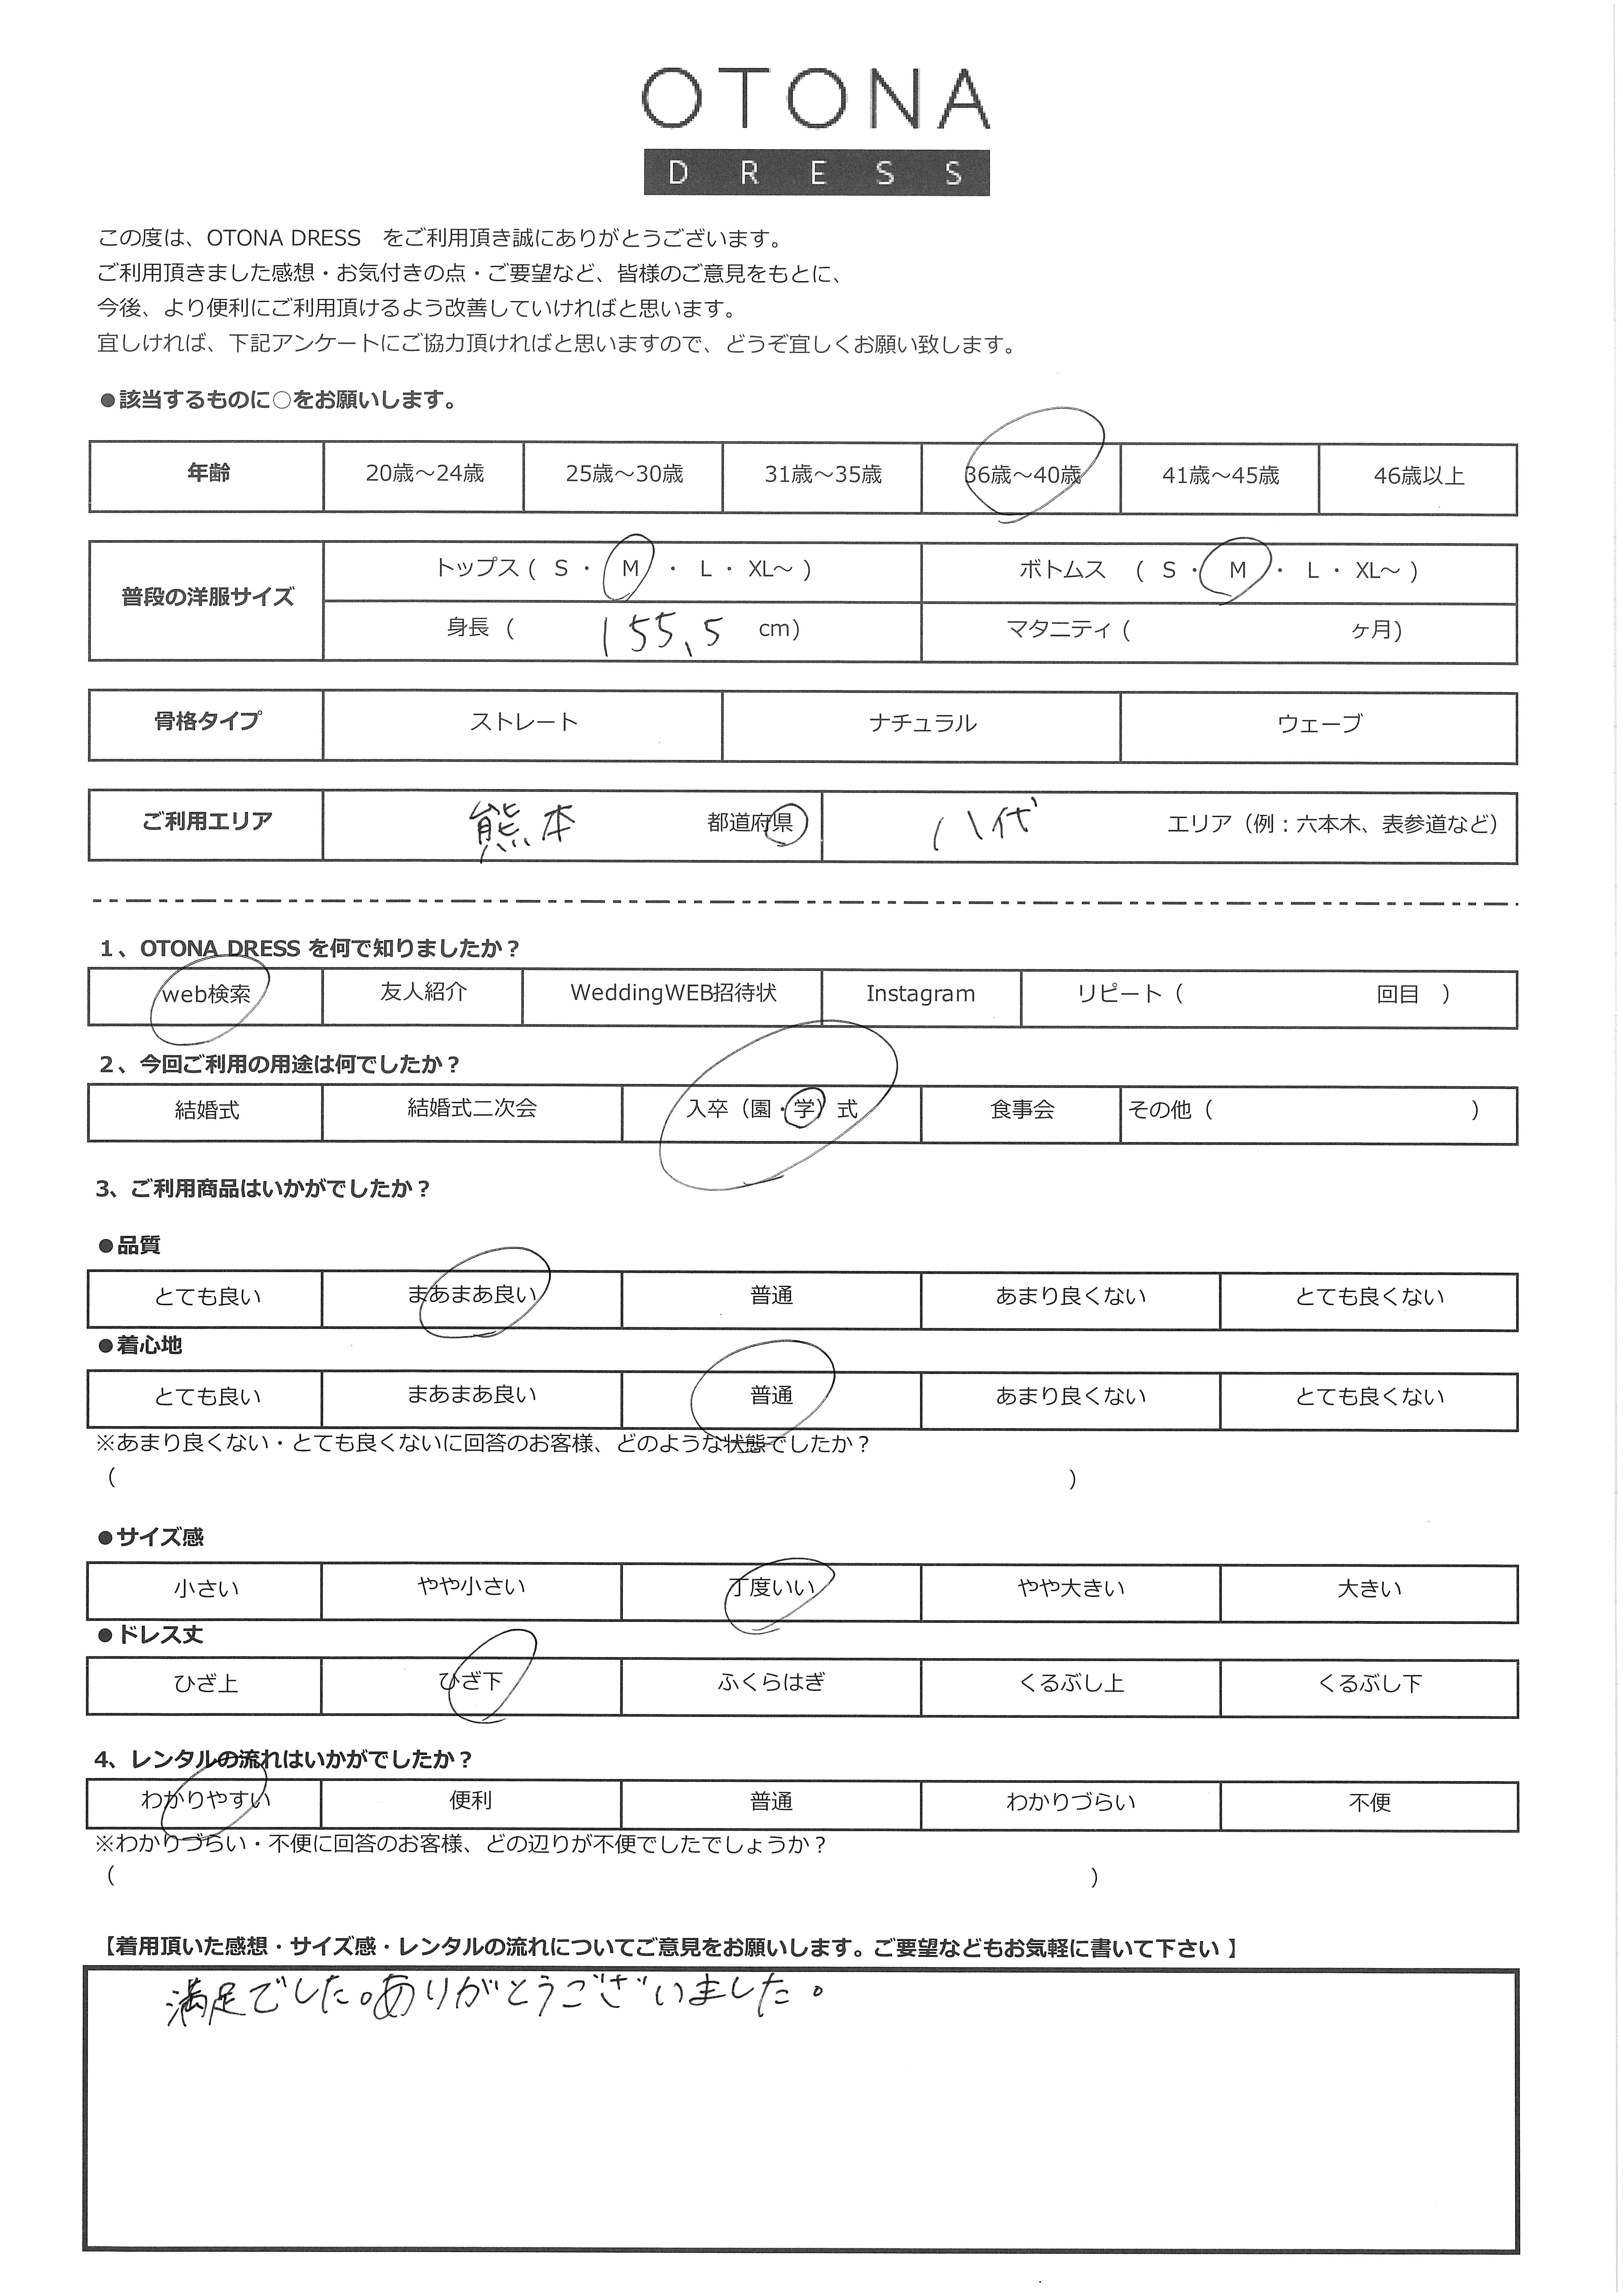 OTONA
DRESS
この度は、OTONA DRESS　をご利用頂き誠にありがとうございます。
ご利用頂きました感想・お気付きの点・ご要望など、皆様のご意見をもとに、
今後、より便利にご利用頂けるよう改善していければと思います。
宜しければ、下記アンケートにご協力頂ければと思いますので、どうぞ宜しくお願い致します。
●該当するものに○をお願いします。
年齢 20歳～24歳 25歳～30歳 31歳～35歳 36歳～40歳 41歳～45歳 46歳以上
普段の洋服サイズ
トップス ( S ・ M ・ L ・ XL～ ) ボトムス ( S ・ M ・ L ・ XL～ )
身長 ( 155.5 cm) マタニティ ( ヶ月)
骨格タイプ ストレート ナチュラル ウェーブ
ご利用エリア 熊本 都道府県 八代 エリア（例：六本木、表参道など）
1、OTONA DRESS を何で知りましたか？
web検索 友人紹介 WeddingWEB招待状 Instagram リピート（ 回目 ）
2、今回ご利用の用途は何でしたか？
結婚式 結婚式二次会 入卒（園・学）式 食事会 その他（ ）
3、ご利用商品はいかがでしたか？
●品質
とても良い まあまあ良い 普通 あまり良くない とても良くない
●着心地
とても良い まあまあ良い 普通 あまり良くない とても良くない
※あまり良くない・とても良くないに回答のお客様、どのような状態でしたか？
（ ）
●サイズ感
小さい やや小さい 丁度いい やや大きい 大きい
●ドレス丈
ひざ上 ひざ下 ふくらはぎ くるぶし上 くるぶし下
4、レンタルの流れはいかがでしたか？
わかりやすい 便利 普通 わかりづらい 不便
※わかりづらい・不便に回答のお客様、どの辺りが不便でしたでしょうか？
（ ）
【着用頂いた感想・サイズ感・レンタルの流れについてご意見をお願いします。ご要望などもお気軽に書いて下さい 】
満足でした。ありがとうございました。